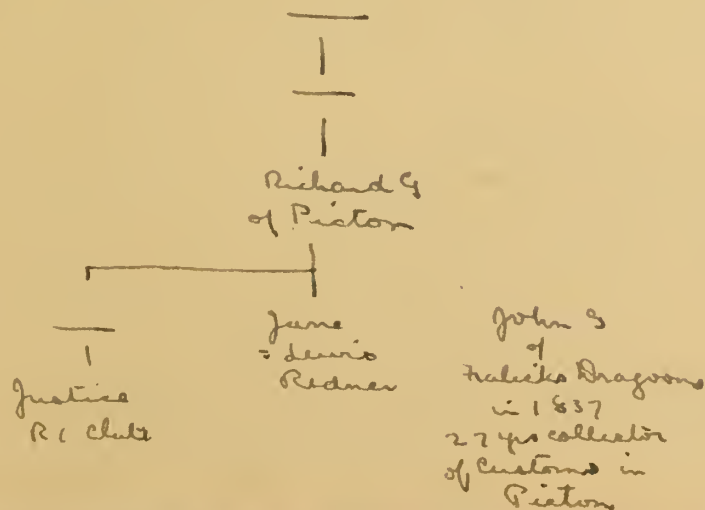 Richard G
of Picton
Justice
R C Clute
Jane
= Lewis
Redner
John G
of
Dragoons
in 1837
27 yrs collector
of Customs in
Picton